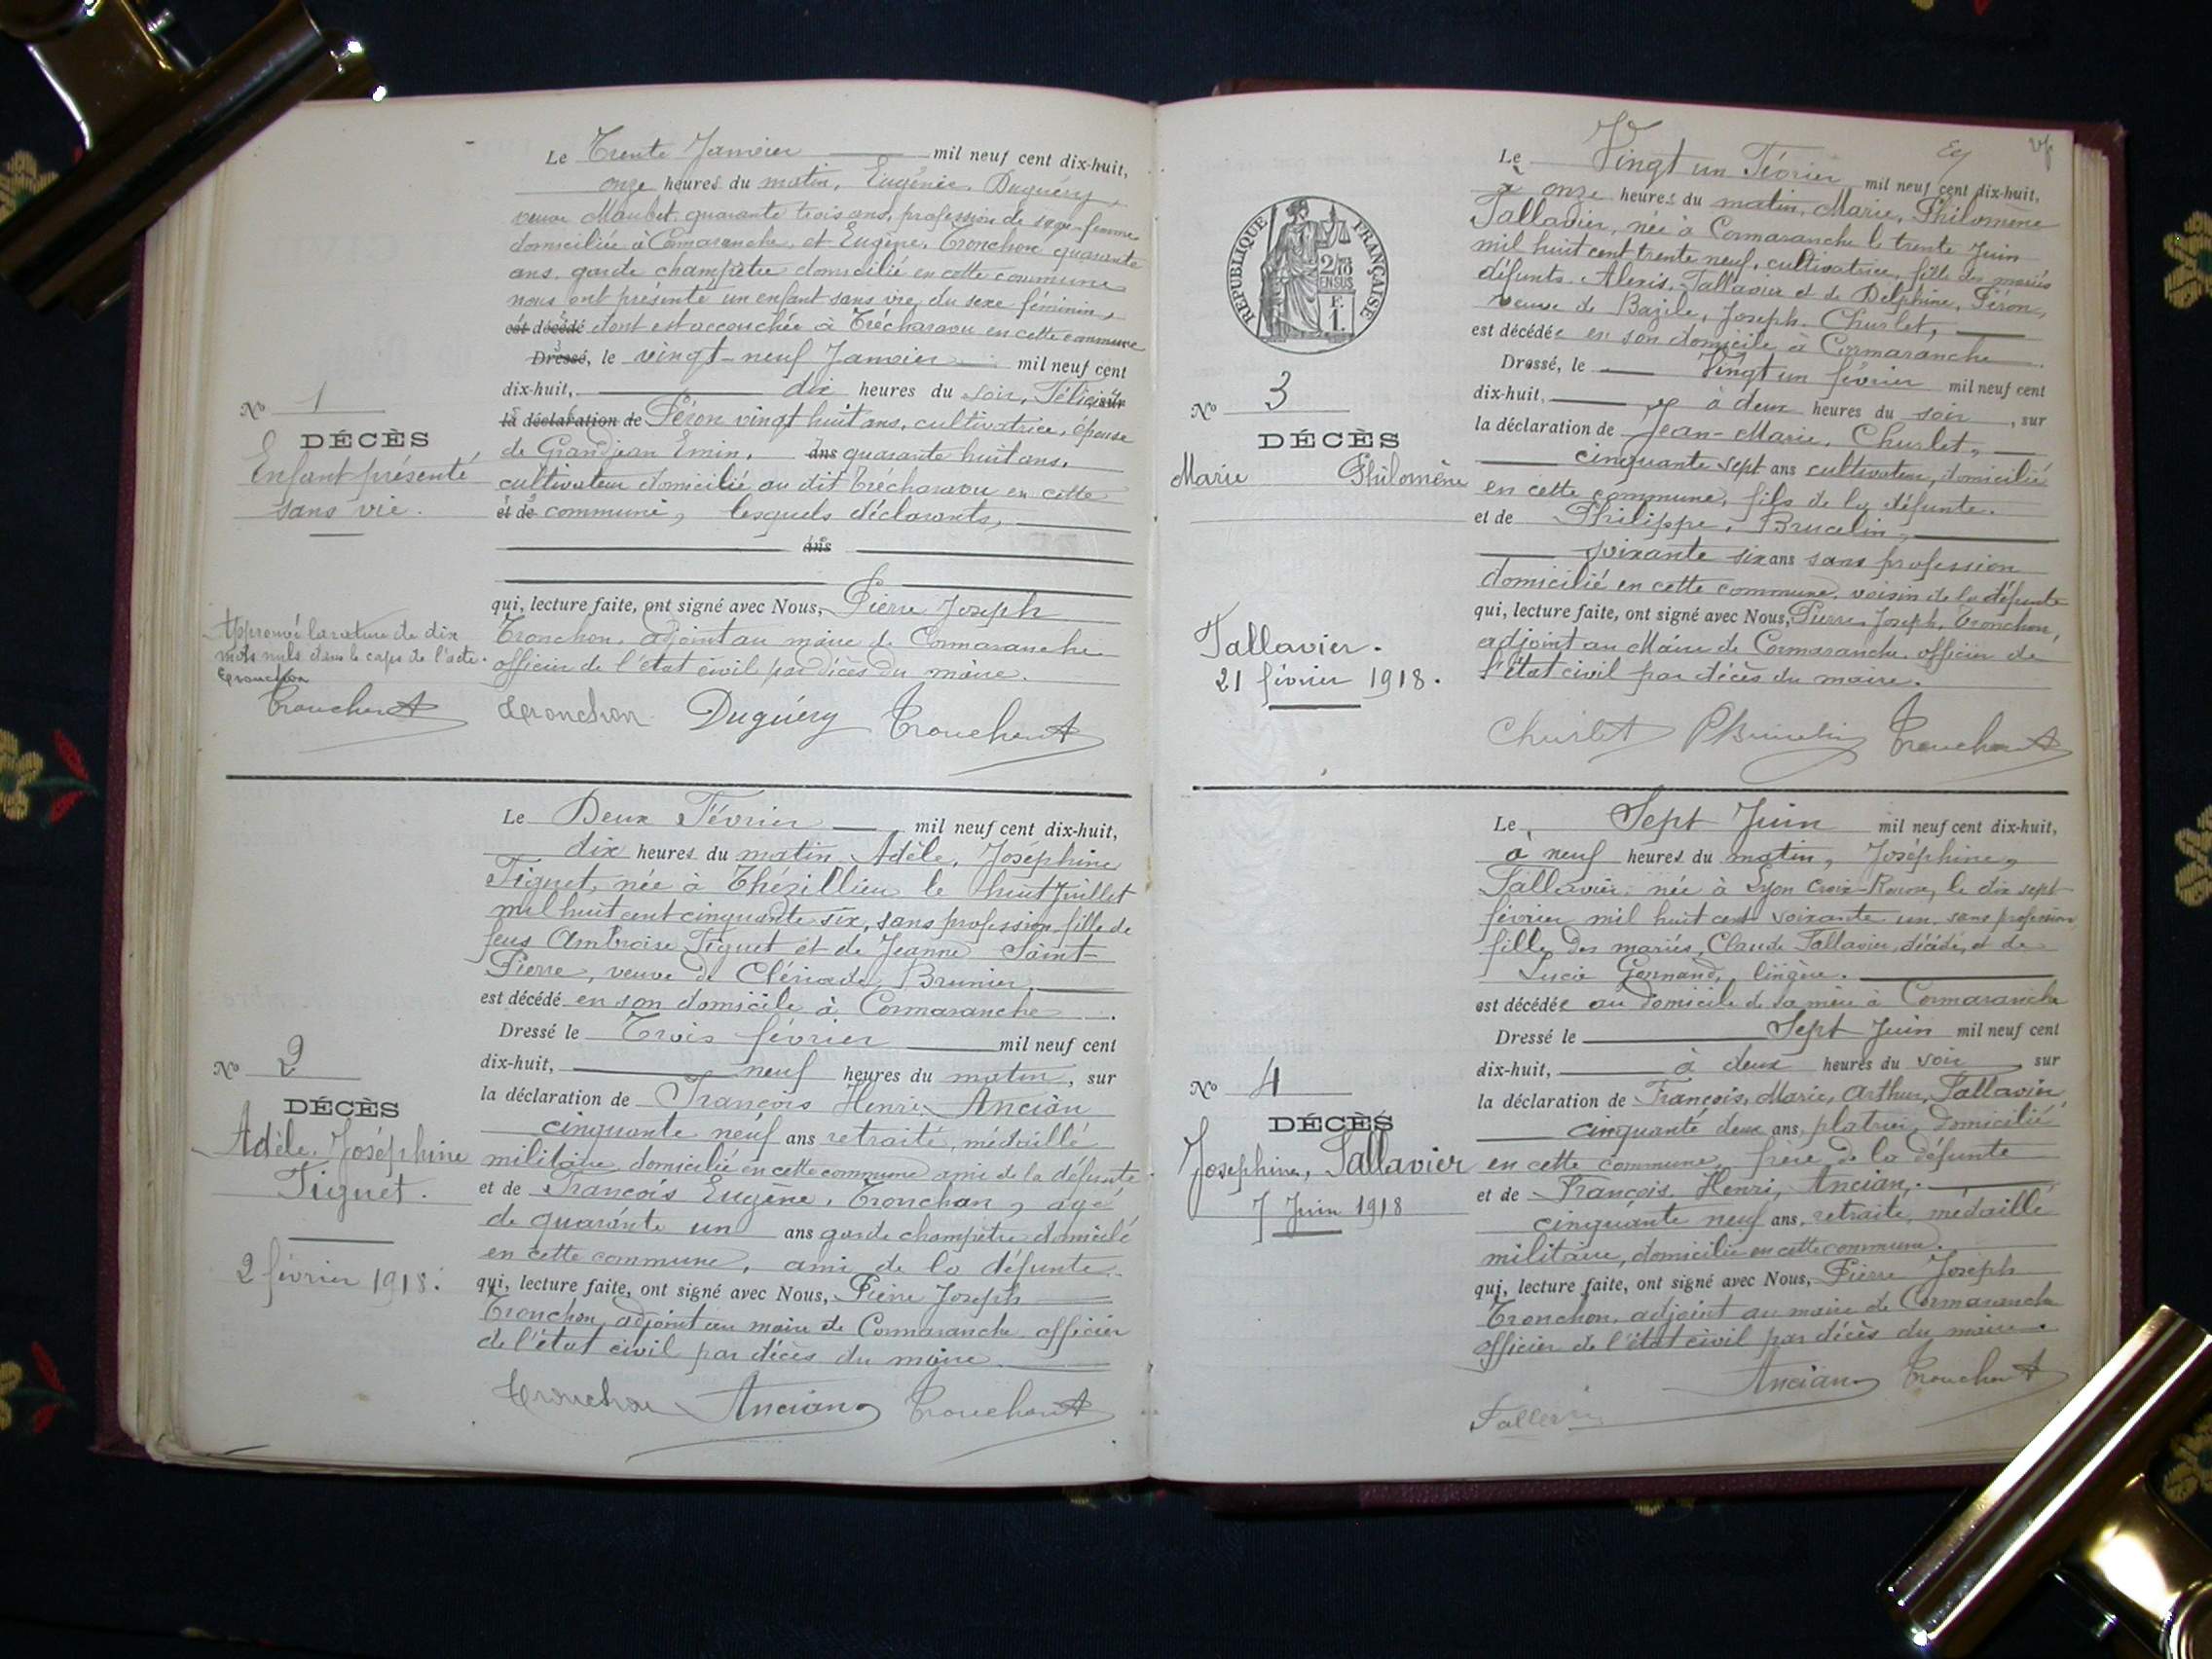 Le Trente Janvier mil neuf cent dix-huit,
onze heures du matin, Eugénie, Duguéry,
veuve Maubet quarante trois ans, profession de sage-femme
domiciliée à Cormaranche, et Eugène, Tronchon quarante
ans, garde champêtre domicilié en cette commune
nous ont présenté un enfant sans vie, du sexe féminin,
est décédé dont est accouchée à Trécharaou en cette commune
Dressé, le vingt-neuf Janvier mil neuf cent
dix-huit, dix heures du soir, Félicie sur
la déclaration de Péron vingt huit ans, cultivatrice, épouse
de Grandjean Emin, ans quarante huit ans,
cultivateur domicilié au dit Trécharaou en cette
et de commune, lesquels déclarants,
ans
qui, lecture faite, ont signé avec Nous, Pierre Joseph
Tronchon, adjoint au maire de Cormaranche
officier de l'état civil par décès du maire.
Nº 1
DÉCÈS
Enfant présenté
sans vie.
Approuvé la rature de dix
mots nuls dans le corps de l'acte.
Tronchon
Tronchon
Tronchon Duguéry Tronchon
Le Deux Février mil neuf cent dix-huit,
dix heures du matin Adèle, Joséphine
Figuet, née à Thézillieu le huit Juillet
mil huit cent cinquante six, sans profession fille de
feus Ambroise Figuet et de Jeanne Saint-
Pierre, veuve de Clériade, Brunier,
est décédé en son domicile à Cormaranche.
Dressé le Trois février mil neuf cent
dix-huit, neuf heures du matin, sur
la déclaration de François Henri, Ancian
cinquante neuf ans retraité, médaillé
militaire, domicilié en cette commune ami de la défunte
et de François Eugène, Tronchon, agé
de quarante un ans garde champêtre domicilé
en cette commune, ami de la défunte.
qui, lecture faite, ont signé avec Nous, Pierre Joseph
Tronchon, adjoint au maire de Cormaranche officier
de l'état civil par décès du maire
Nº 2
DÉCÈS
Adèle, Joséphine
Figuet.
2 février 1918.
Tronchon Ancian Tronchon
Le Vingt un Février mil neuf cent dix-huit,
à onze heures du matin, Marie, Philomène
Tallavier, née à Cormaranche le trente Juin
mil huit cent trente neuf, cultivatrice, fille des mariés
défunts Alexis, Tallavier et de Delphine, Péron,
veuve de Bazile, Joseph, Churlet,
est décédée en son domicile à Cormaranche
Dressé, le Vingt un février mil neuf cent
dix-huit, à deux heures du soir, sur
la déclaration de Jean-Marie, Churlet,
cinquante sept ans cultivateur, domicilié
en cette commune, fils de la défunte.
et de Philippe, Brucelin,
soixante six ans sans profession
domicilié en cette commune, voisin de la défunte
qui, lecture faite, ont signé avec Nous, Pierre, Joseph, Tronchon,
adjoint au Maire de Cormaranche officier de
l'état civil par décès du maire.
RÉPUBLIQUE FRANÇAISE
2/10
EN SUS
Nº 3
DÉCÈS
Marie Philomène
Tallavier.
21 février 1918.
Churlet PBrucelin Tronchon
Le Sept Juin mil neuf cent dix-huit,
à neuf heures du matin, Joséphine,
Tallavier, née à Lyon Croix-Rousse, le dix sept
février mil huit cent soixante un, sans profession,
fille des mariés, Claude Tallavier, décédé, et de
Lucie Gonnand, lingère.
est décédée au domicile de sa mère à Cormaranche
Dressé le Sept Juin mil neuf cent
dix-huit, à deux heures du soir sur
la déclaration de François, Marie, Arthur, Tallavier,
cinquante deux ans, platrier, domicilié
en cette commune, frère de la défunte
et de François, Henri, Ancian,
cinquante neuf ans, retraité, médaillé
militaire, domicilié en cette commune.
qui, lecture faite, ont signé avec Nous, Pierre Joseph
Tronchon, adjoint au maire de Cormaranche
officier de l'état civil par décès du maire.
Nº 4
DÉCÈS
Josephine, Tallavier
7 Juin 1918
Ancian Tronchon